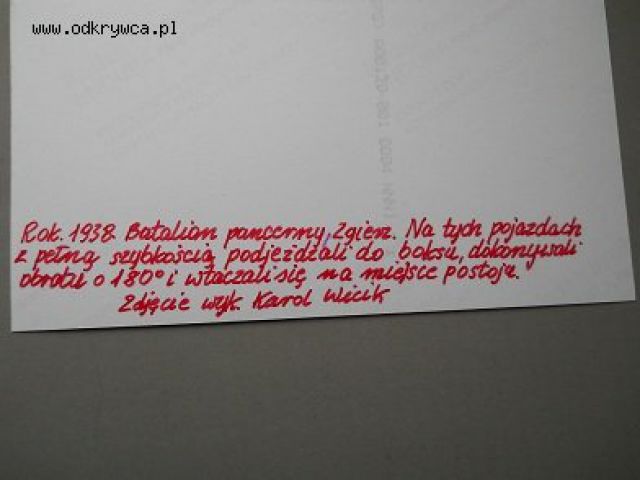 www.odkrywca.pl
Rok. 1938. Batalion pancerny, Zgierz. Na tych pojazdach
z pełną szybkością podjeżdżali do boksu, dokonywali
obrotu o 180° i wtaczali się na miejsce postoju.
Zdjęcie wyk. Karol Wicik